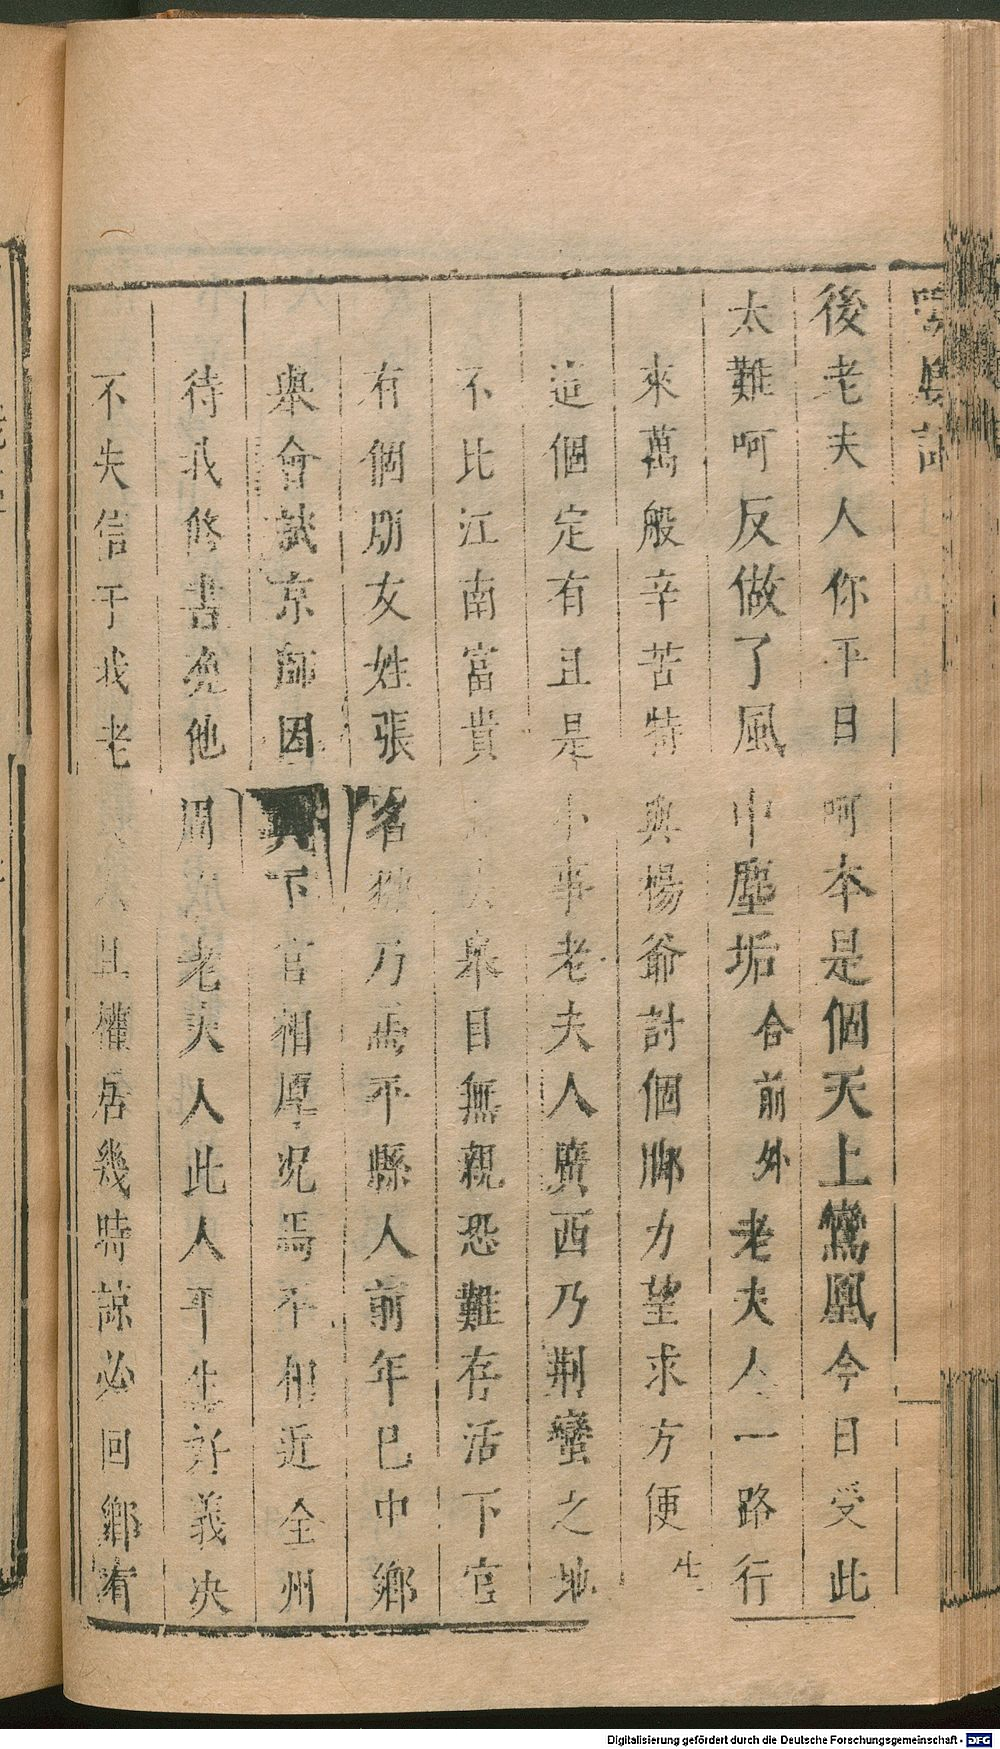 後老夫人你平日呵本是個天上鸞凰今日受此
太難呵反做了風中塵垢合前外老夫人一路行
來萬般辛苦特與楊爺討個脚力望求方便生
這個定有且是小事老夫人廣西乃荆蠻之地
不比江南富貴舉目無親恐難存活下官
有個朋友姓張名乃焉平縣人前年已中鄉
舉會試京師因與下官相厚况焉平相近全州
待我修書堯他周老夫人此人平生好義决
不失信于我老夫人且權居幾時諒必回鄉有
Digitalisierung gefördert durch die Deutsche Forschungsgemeinschaft - DFG